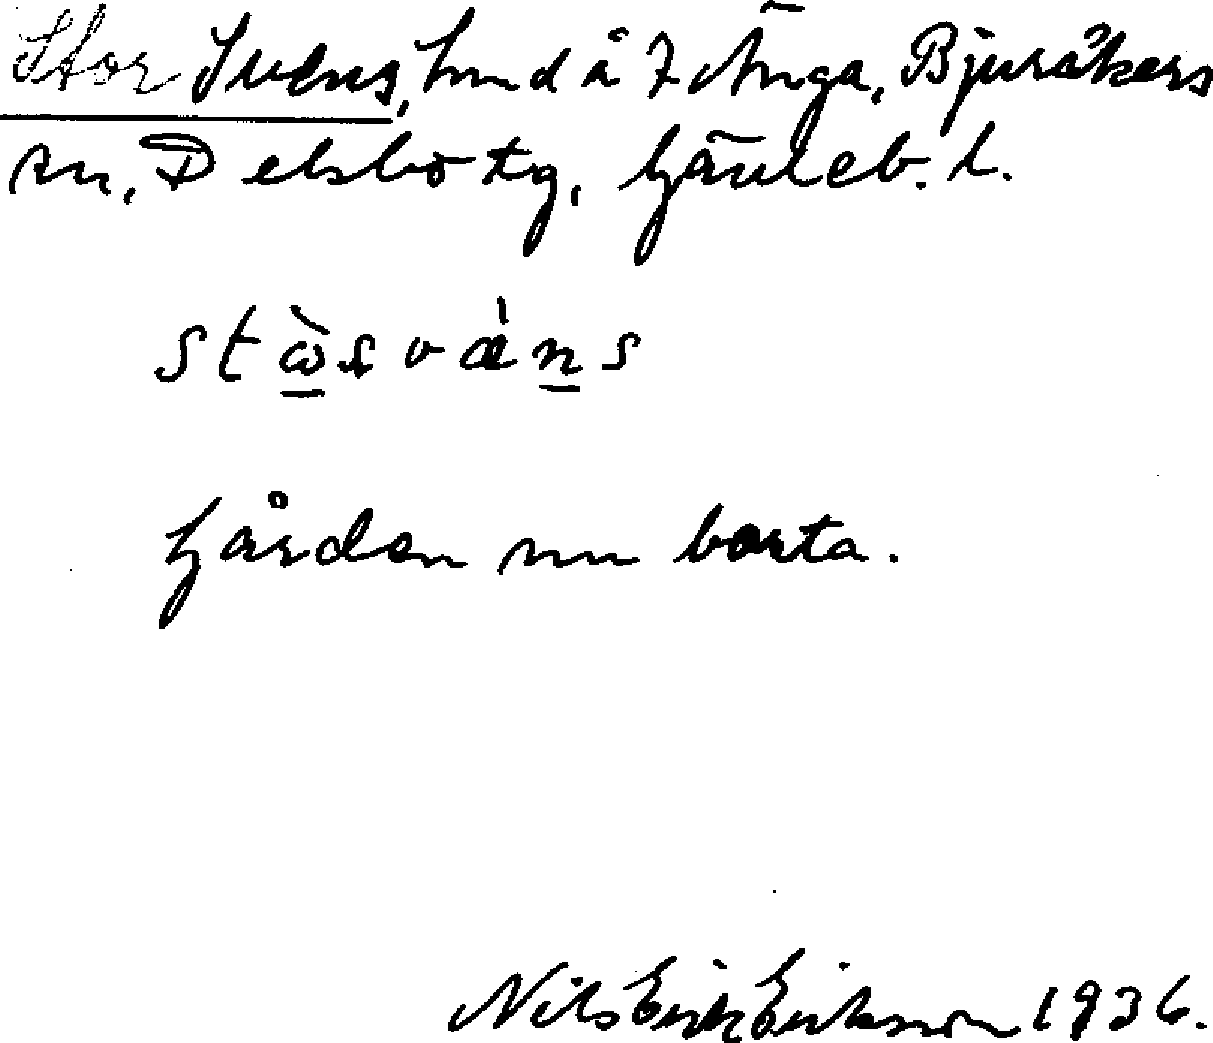 Stor Svens, hmd å 7 Änga, Bjuråkers
sn, Delsbo tg, Gävleb. l.
stɷ̀svæ̀ns
Gården nu borta.
Nils Erik Eriksson 1936.